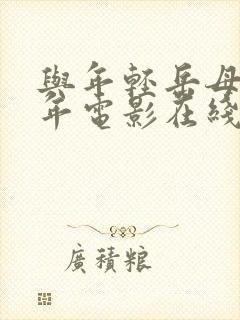 與年輕岳母
年電影在綫
廣積糧